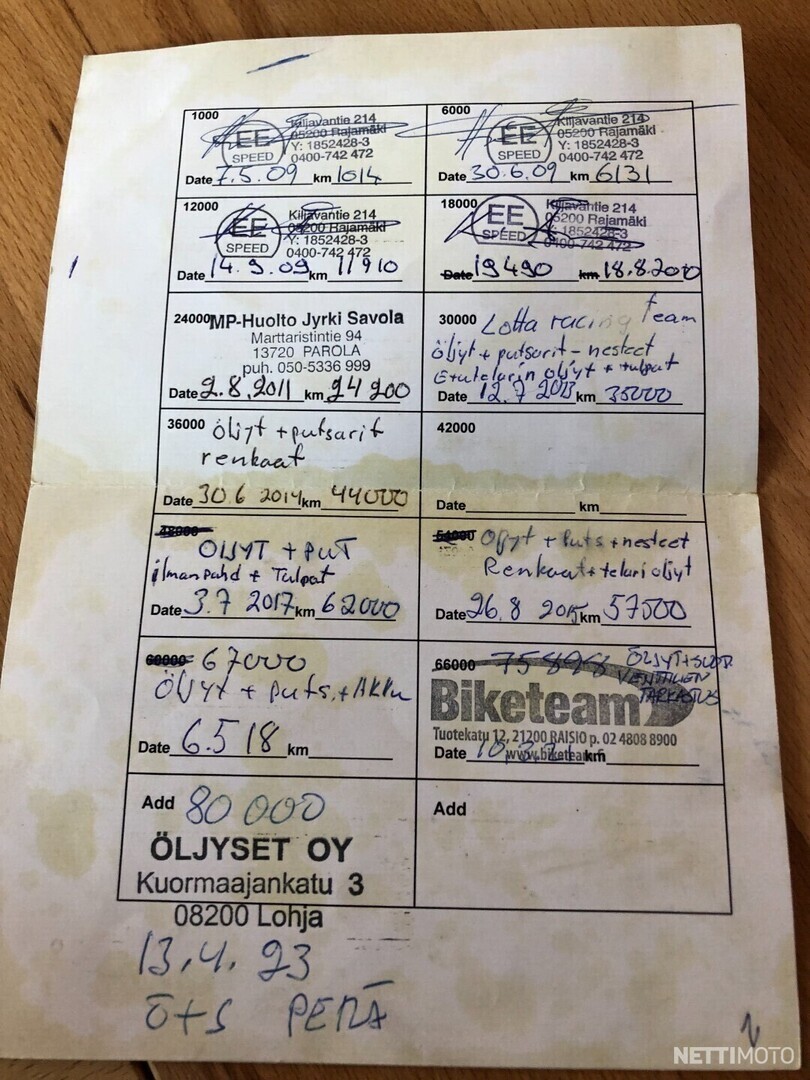 1000
EE
SPEED
Kiljavantie 214
05200 Rajamäki
Y: 1852428-3
0400-742 472
Date 7.5.09 km 1014
6000
EE
SPEED
Kiljavantie 214
05200 Rajamäki
Y: 1852428-3
0400-742 472
Date 30.6.09 km 6131
12000
EE
SPEED
Kiljavantie 214
05200 Rajamäki
Y: 1852428-3
0400-742 472
Date 14.9.09 km 11910
18000
EE
SPEED
Kiljavantie 214
05200 Rajamäki
Y: 1852428-3
0400-742 472
Date 19490 km 18.8.2010
24000 MP-Huolto Jyrki Savola
Marttaristintie 94
13720 PAROLA
puh. 050-5336 999
Date 2.8.2011 km 24 200
30000 Lotta racing team
Öljyt + putsarit - nesteet
Etutelarin öljyt + tulpat
Date 12.7 2013 km 35000
36000 Öljyt + putsarit
renkaat
Date 30.6 2014 km 44000
42000
Date km
48000
ÖLJYT + PUT
ilmanpuhd + Tulpat
Date 3.7 2017 km 62000
54000 Öljyt + Puts + nesteet
Renkaat + telari öljyt
Date 26.8 2015 km 57500
60000 67000
Öljyt + puts. + AKKu
Date 6.5 18 km
66000 75898 ÖLJYT+SUOD.
VENTTIILIEN
TARKASTUS
Biketeam
Tuotekatu 12, 21200 RAISIO p. 02 4808 8900
www.biketeam.fi
Date km
Add 80 000
ÖLJYSET OY
Kuormaajankatu 3
08200 Lohja
13.4.23
Ö+S PERÄ
Add
NETTIMOTO